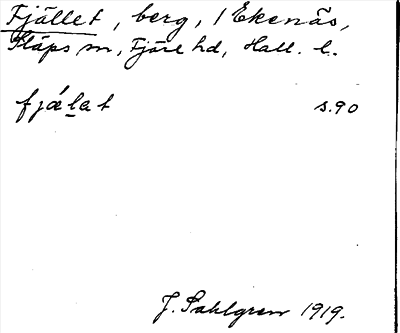 Fjället, berg, / Ekenäs,
Släps sn, Fjäre hd, Hall. l.
fjǽlat s.90
J. Sahlgren 1919.